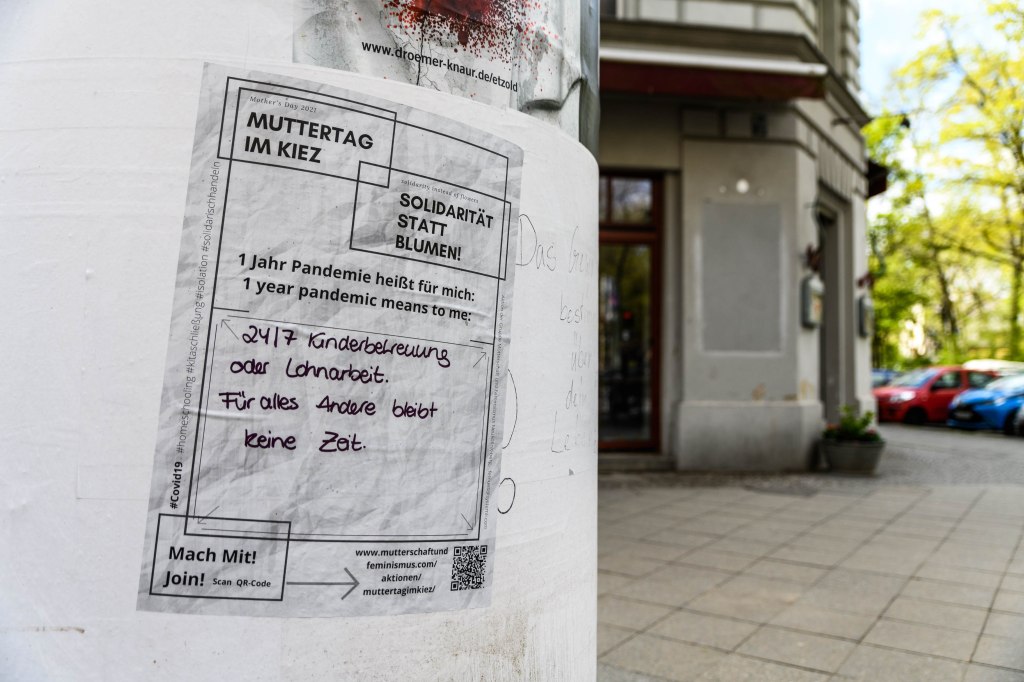 www.droemer-knaur.de/etzold
Mother's Day 2021
MUTTERTAG
IM KIEZ
solidarity instead of flowers
SOLIDARITÄT
STATT
BLUMEN!
1 Jahr Pandemie heißt für mich:
1 year pandemic means to me:
24/7 Kinderbetreuung
oder Lohnarbeit.
Für alles Andere bleibt
keine Zeit.
#Covid19 #homeschooling #kitaschließung #isolation #solidarischhandeln
Mach Mit!
Join! Scan QR-Code
www.mutterschaftund
feminismus.com/
aktionen/
muttertagimkiez/
Das